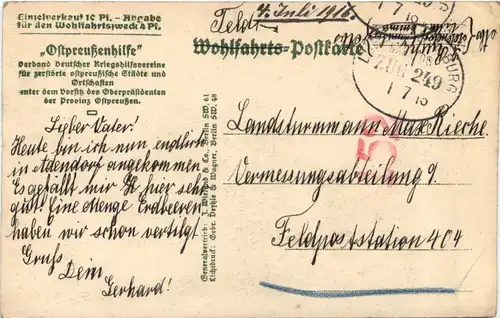 Einzelverkauf 10 Pf. – Abgabe
für den Wohlfahrtszweck 4 Pf.
„Ostpreußenhilfe”
Verband Deutscher Kriegshilfsvereine
für zerstörte ostpreußische Städte und
Ortschaften
unter dem Vorsitz des Oberpräsidenten
der Provinz Ostpreußen.
Lieber Vater!
Heute bin ich nun endlich
in Adendorf angekommen
Es gefällt mir hier sehr
gut! Eine Menge Erdbeeren
haben wir schon vertilgt!
Gruss
Dein
Gerhard!
Generalvertrieb: J. & Co., Berlin SW. 61
Lichtdruck: Gebr. & Wagner, Berlin SW. 48
Feldp 4. Juli 1916.
Wohlfahrts-Postkarte
BURG
ZUG 249
1 7 16
Landsturmmann Max Rieche
Vermessungsabteilung 9.
Feldpoststation 404